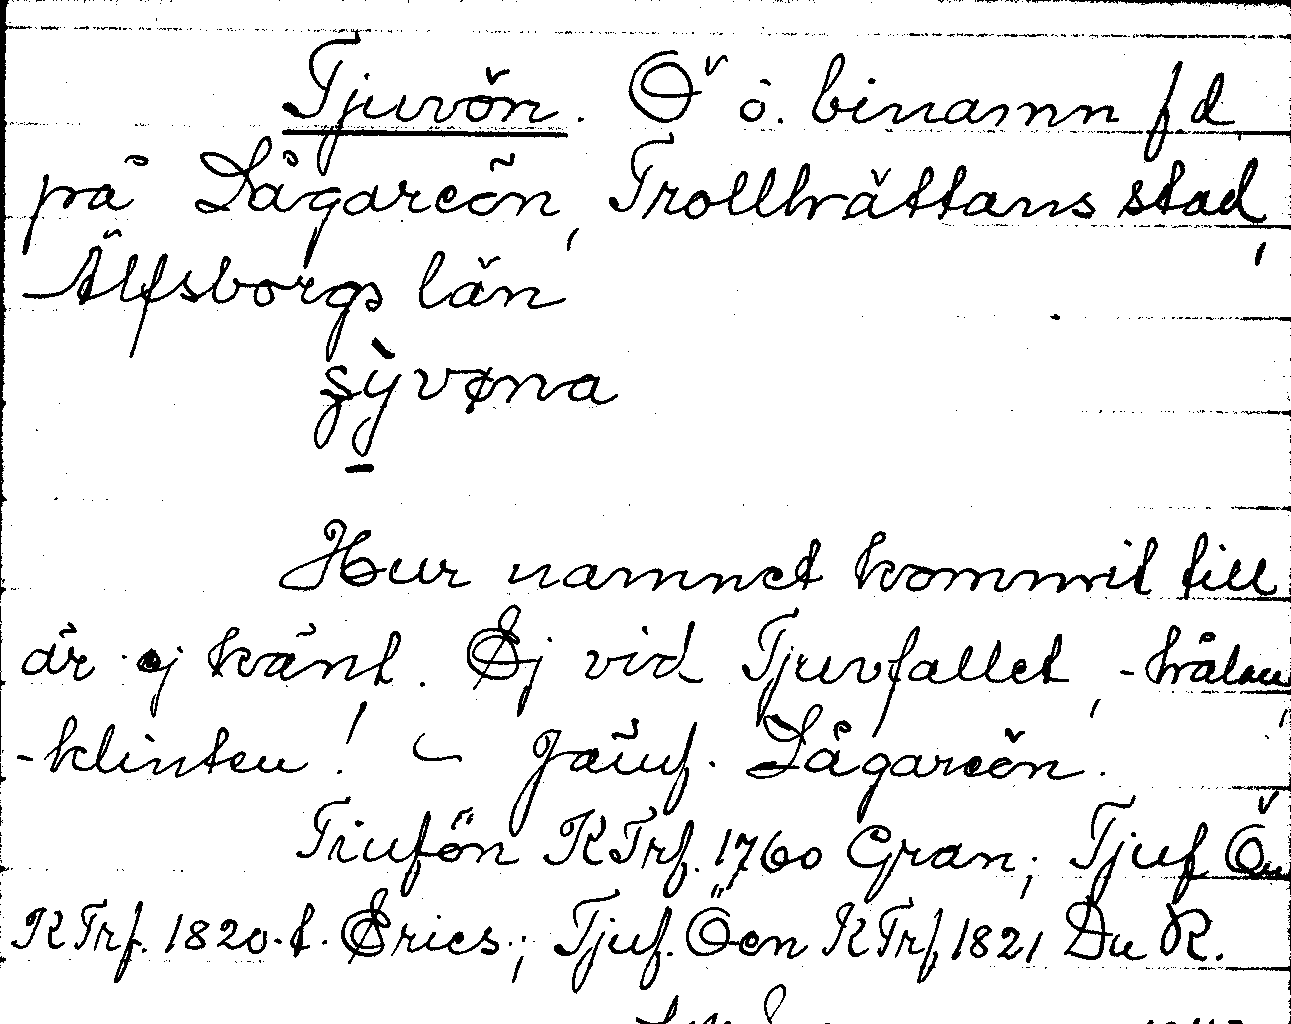 Tjuvön. Ö ö. binamn f.d.
på Dågareön, Trollhättans stad,
Älfsborgs län
şỳvøna
Hur namnet kommit till
är ej känt. Ej vid Tjuvfallet, -hålan,
-klinten! – Jämf. Dågareön.
Tiufön KTrf. 1760 Gran; Tjuf Ön
KTrf. 1820-t. Erics.; Tjuf. Öen KTrf 1821 Du R.